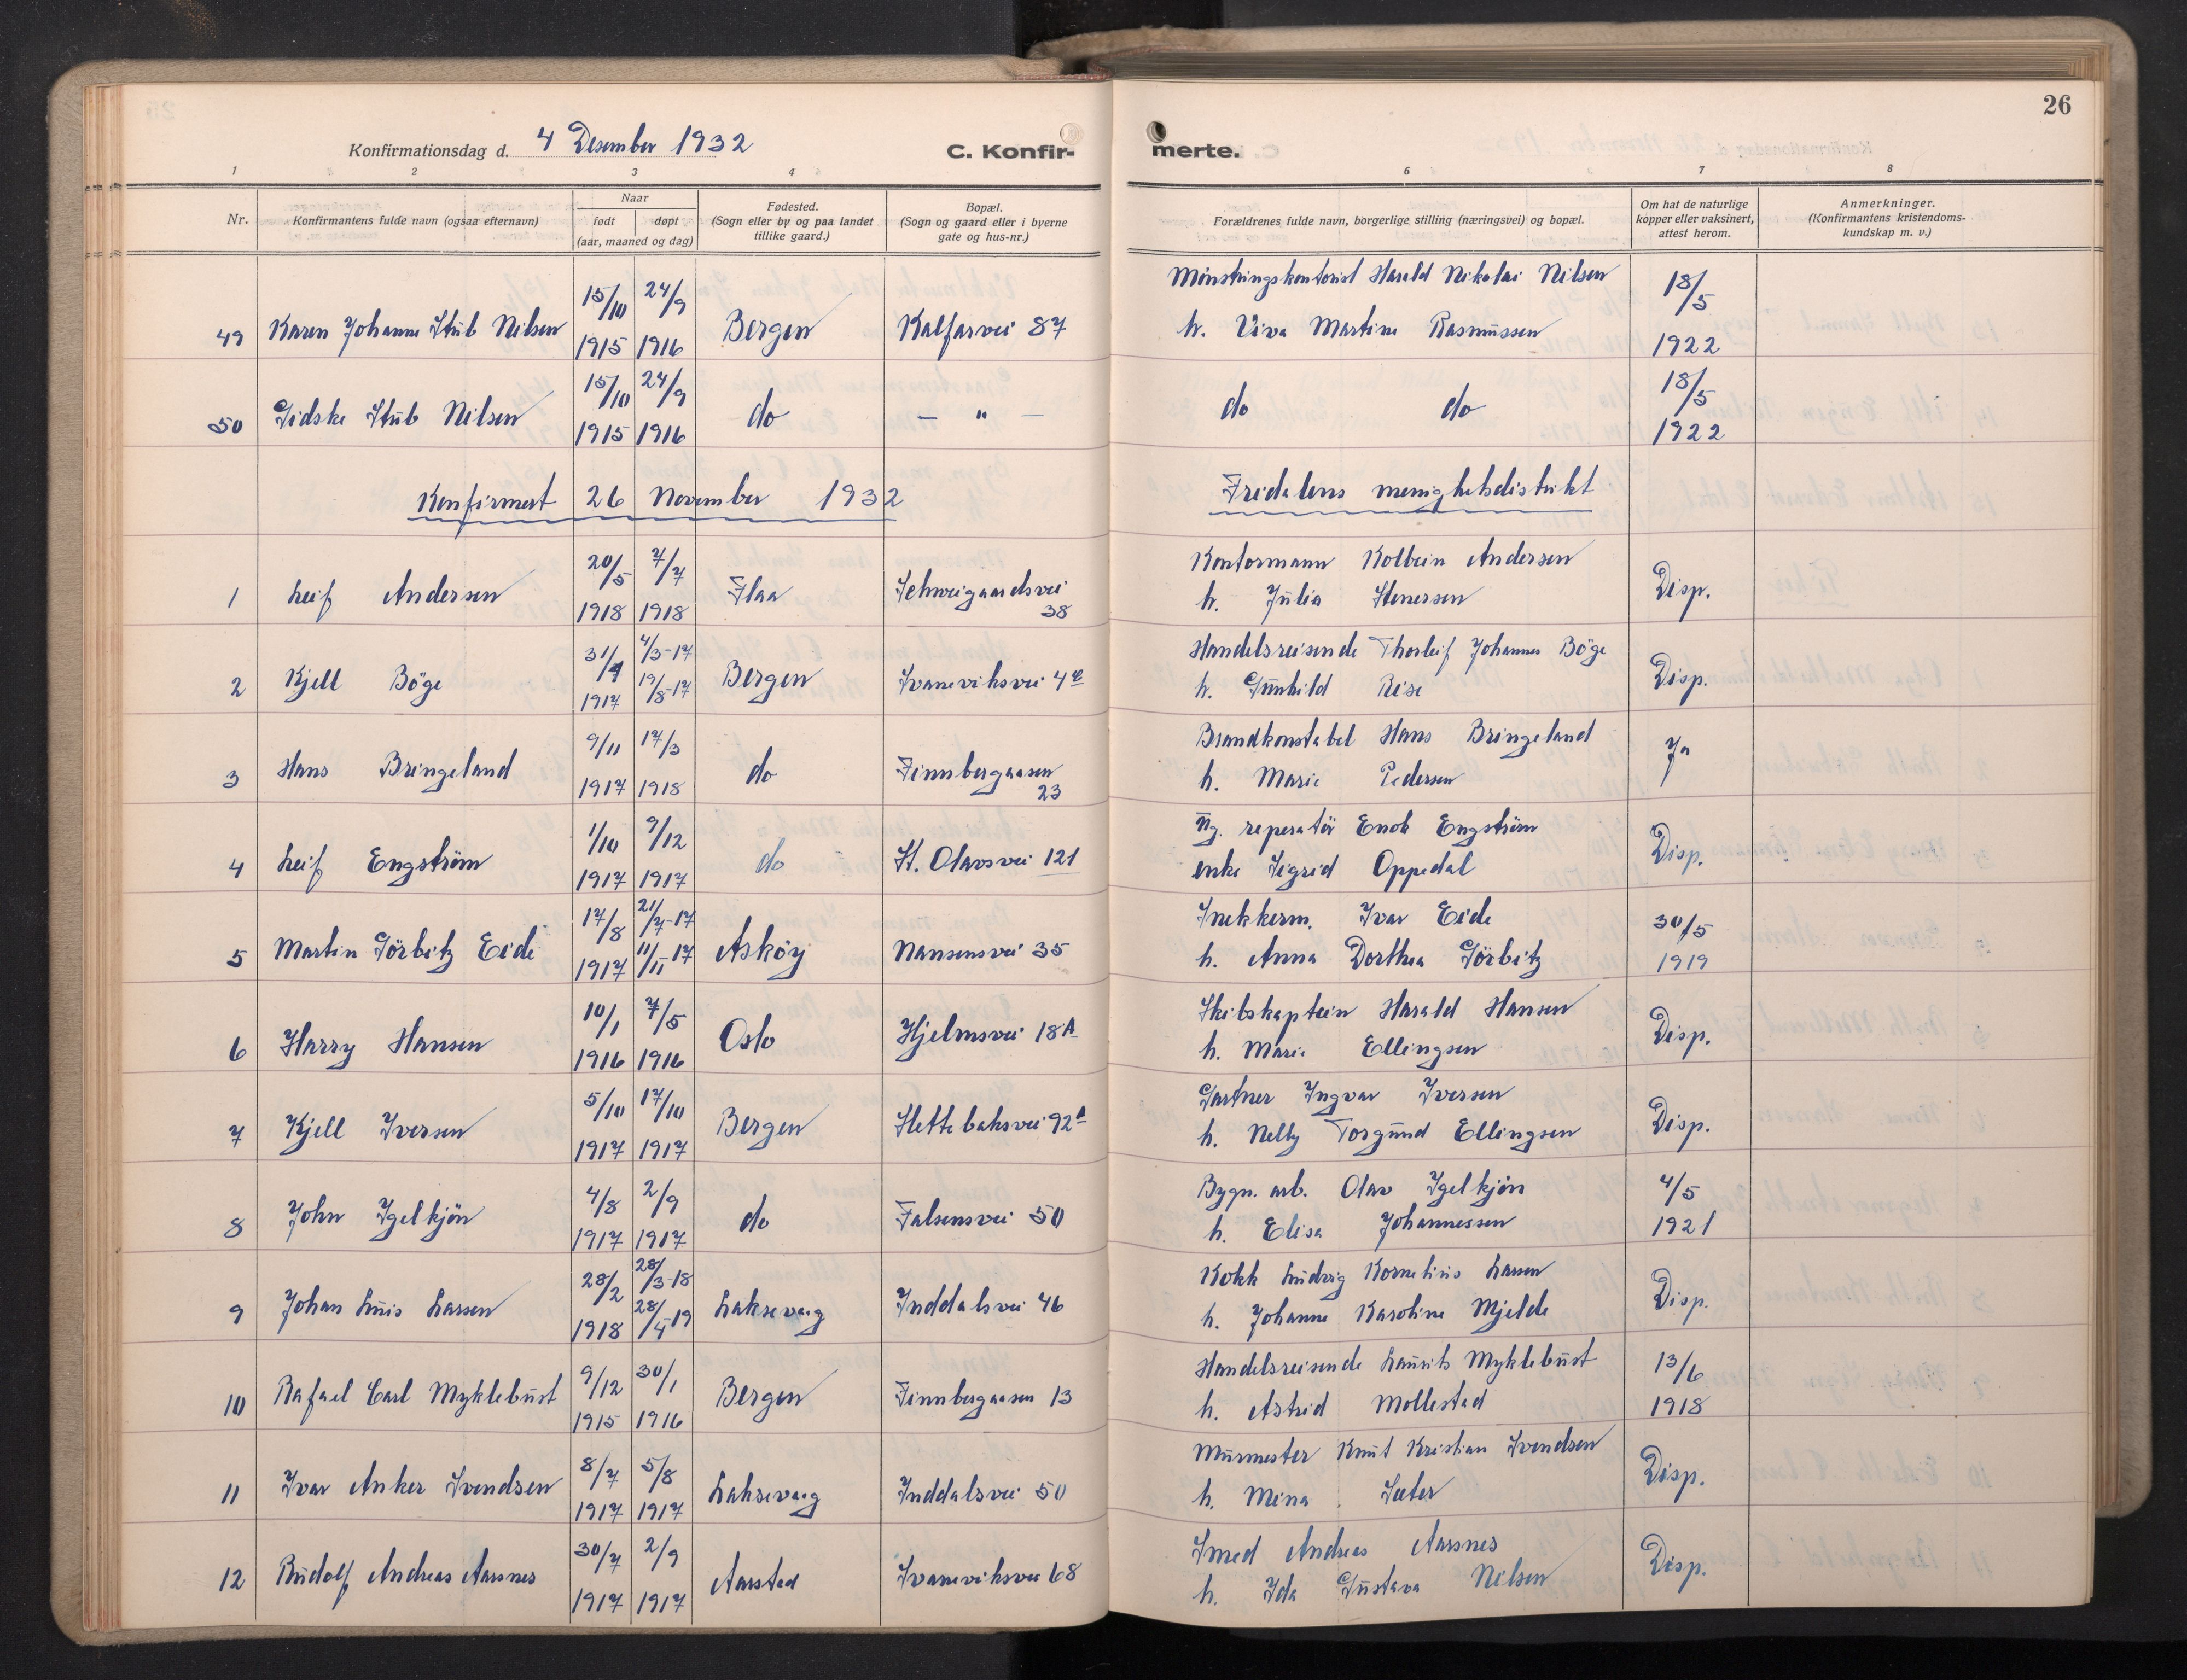 26
Konfirmationsdag d. 4 Desember 1932
C. Konfir- merte.
1 2 3 4 6 7 8
Nr. Konfirmantens fulde navn (ogsaa efternavn) Naar født døpt (aar, maaned og dag) Fødested. (Sogn eller by og paa landet tillike gaard.) Bopæl. (Sogn og gaard eller i byerne gate og hus-nr.) Forældrenes fulde navn, borgerlige stilling (næringsvei) og bopæl. Om hat de naturlige kopper eller vaksinert, attest herom. Anmerkninger. (Konfirmantens kristendoms- kundskap m. v.)
15/10 24/9 Mönstringskontorist Harald Nikolai Nilsen 18/5
49 Karen Johanne Stub Nilsen 1915 1916 Bergen Kalfarvei 87 h. Viva Martine Rasmussen 1922
15/10 24/9 18/5
50 Gidske Stub Nilsen 1915 1916 do — " — do do 1922
Konfirmert 26 November 1932 Fridalens menighetsdistrikt
20/5 7/7 Kontormann Kolbein Andersen
1 Leif Andersen 1918 1918 Flaa Schweigaardsvei 38 h. Julia Stenersen Disp.
31/1 4/3-17 Handelsreisende Thorleif Johannes Böge
2 Kjell Böge 1917 19/8-17 Bergen Svaneviksvei 4 h. Gunhild Reise Disp.
9/11 17/3 Brandkonstabel Hans Bringeland
3 Hans Bringeland 1917 1918 do Finnbergaasen 23 h. Marie Pedersen Ja
1/10 9/12 reperatör Enok Engström
4 Leif Engström 1917 1917 do St. Olavsvei 121 enke Sigrid Oppedal Disp.
17/8 21/7-17 Snekkerm. Ivar Eide 30/5
5 Martin Görbitz Eide 1917 11/11 17 Asköy Nansensvei 35 h. Anna Dorthea Görbitz 1919
10/1 7/5 Skibskaptein Harald Hansen
6 Harry Hansen 1916 1916 Oslo Hjelmsvei 18A h. Marie Ellingsen Disp.
5/10 17/10 Gartner Ingvar Iversen
7 Kjell Iversen 1917 1917 Bergen Slettebaksvei 92A h. Nelly Torgund Ellingsen Disp.
4/8 2/9 Bygn. arb. Olav Igelkjön 4/5
8 John Igelkjön 1917 1917 do Falsensvei 50 h. Elisa Johannessen 1921
28/2 28/3-18 Kokk Ludvig Kornelius Larsen
9 Johan Luis Larsen 1918 28/4-19 Laksevaag Inddalsvei 46 h. Johanne Karoline Mjelde Disp.
9/12 30/1 Handelsreisende Laurits Myklebust 13/6
10 Rafael Carl Myklebust 1915 1916 Bergen Finnbergaasen 13 h. Astrid Mollestad 1918
8/7 5/8 Murmester Knut Kristian Svendsen
11 Ivar Anker Svendsen 1917 1917 Laksevaag Inddalsvei 50 h. Mina Sæter Disp.
30/7 2/9 Smed Andreas Aarsnes
12 Rudolf Andreas Aarsnes 1917 1917 Aarstad Svaneviksvei 68 h. Ida Gustava Nilsen Disp.